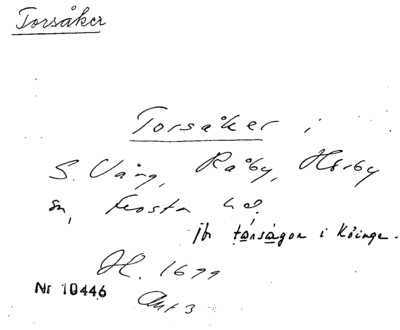 Torsåker
Torsåker i
S. Vång, Råby, Hörby
sn, Frosta hd.
jfr tårsågor i Köinge.
H. 1699
Nr 10446